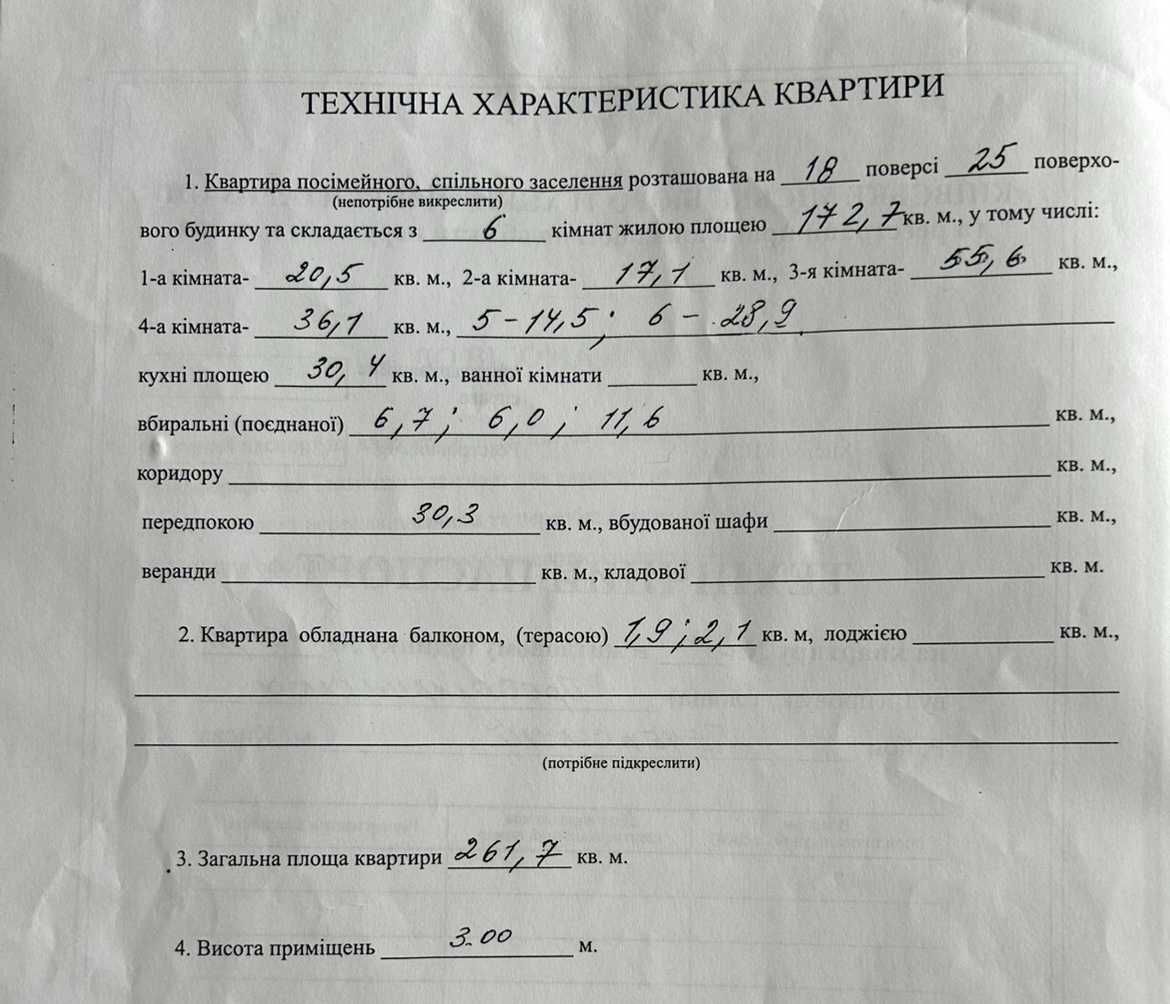 ТЕХНІЧНА ХАРАКТЕРИСТИКА КВАРТИРИ
1. Квартира посімейного, спільного заселення розташована на 18 поверсі 25 поверхо-
(непотрібне викреслити)
вого будинку та складається з 6 кімнат жилою площею 172,7 кв. м., у тому числі:
1-а кімната- 20,5 кв. м., 2-а кімната- 17,1 кв. м., 3-я кімната- 55,6 кв. м.,
4-а кімната- 36,1 кв. м., 5-14,5; 6-28,9
кухні площею 30,4 кв. м., ванної кімнати кв. м.,
вбиральні (поєднаної) 6,7; 6,0; 11,6 кв. м.,
коридору кв. м.,
передпокою 30,3 кв. м., вбудованої шафи кв. м.,
веранди кв. м., кладової кв. м.
2. Квартира обладнана балконом, (терасою) 1,9; 2,1 кв. м, лоджією кв. м.,
(потрібне підкреслити)
3. Загальна площа квартири 261,7 кв. м.
4. Висота приміщень 3.00 м.